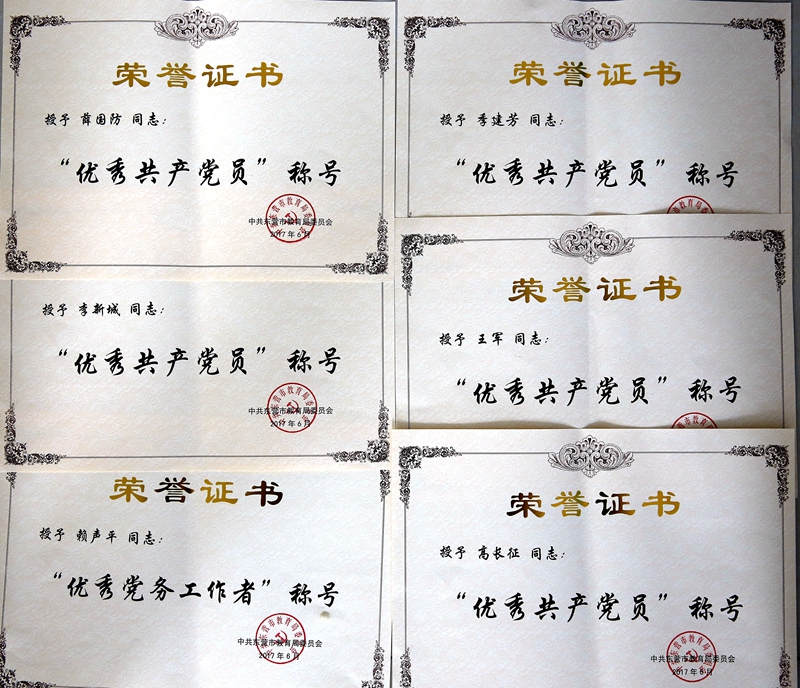 荣誉证书
授予 薛国防 同志：
“优秀共产党员”称号
中共东营市教育局委员会
2017年6月
授予 李新城 同志：
“优秀共产党员”称号
中共东营市教育局委员会
2017年6月
荣誉证书
授予 赖声平 同志：
“优秀党务工作者”称号
中共东营市教育局委员会
2017年6月
荣誉证书
授予 季建芳 同志：
“优秀共产党员”称号
荣誉证书
授予 王军 同志：
“优秀共产党员”称号
荣誉证书
授予 高长征 同志：
“优秀共产党员”称号
中共东营市教育局委员会
2017年6月